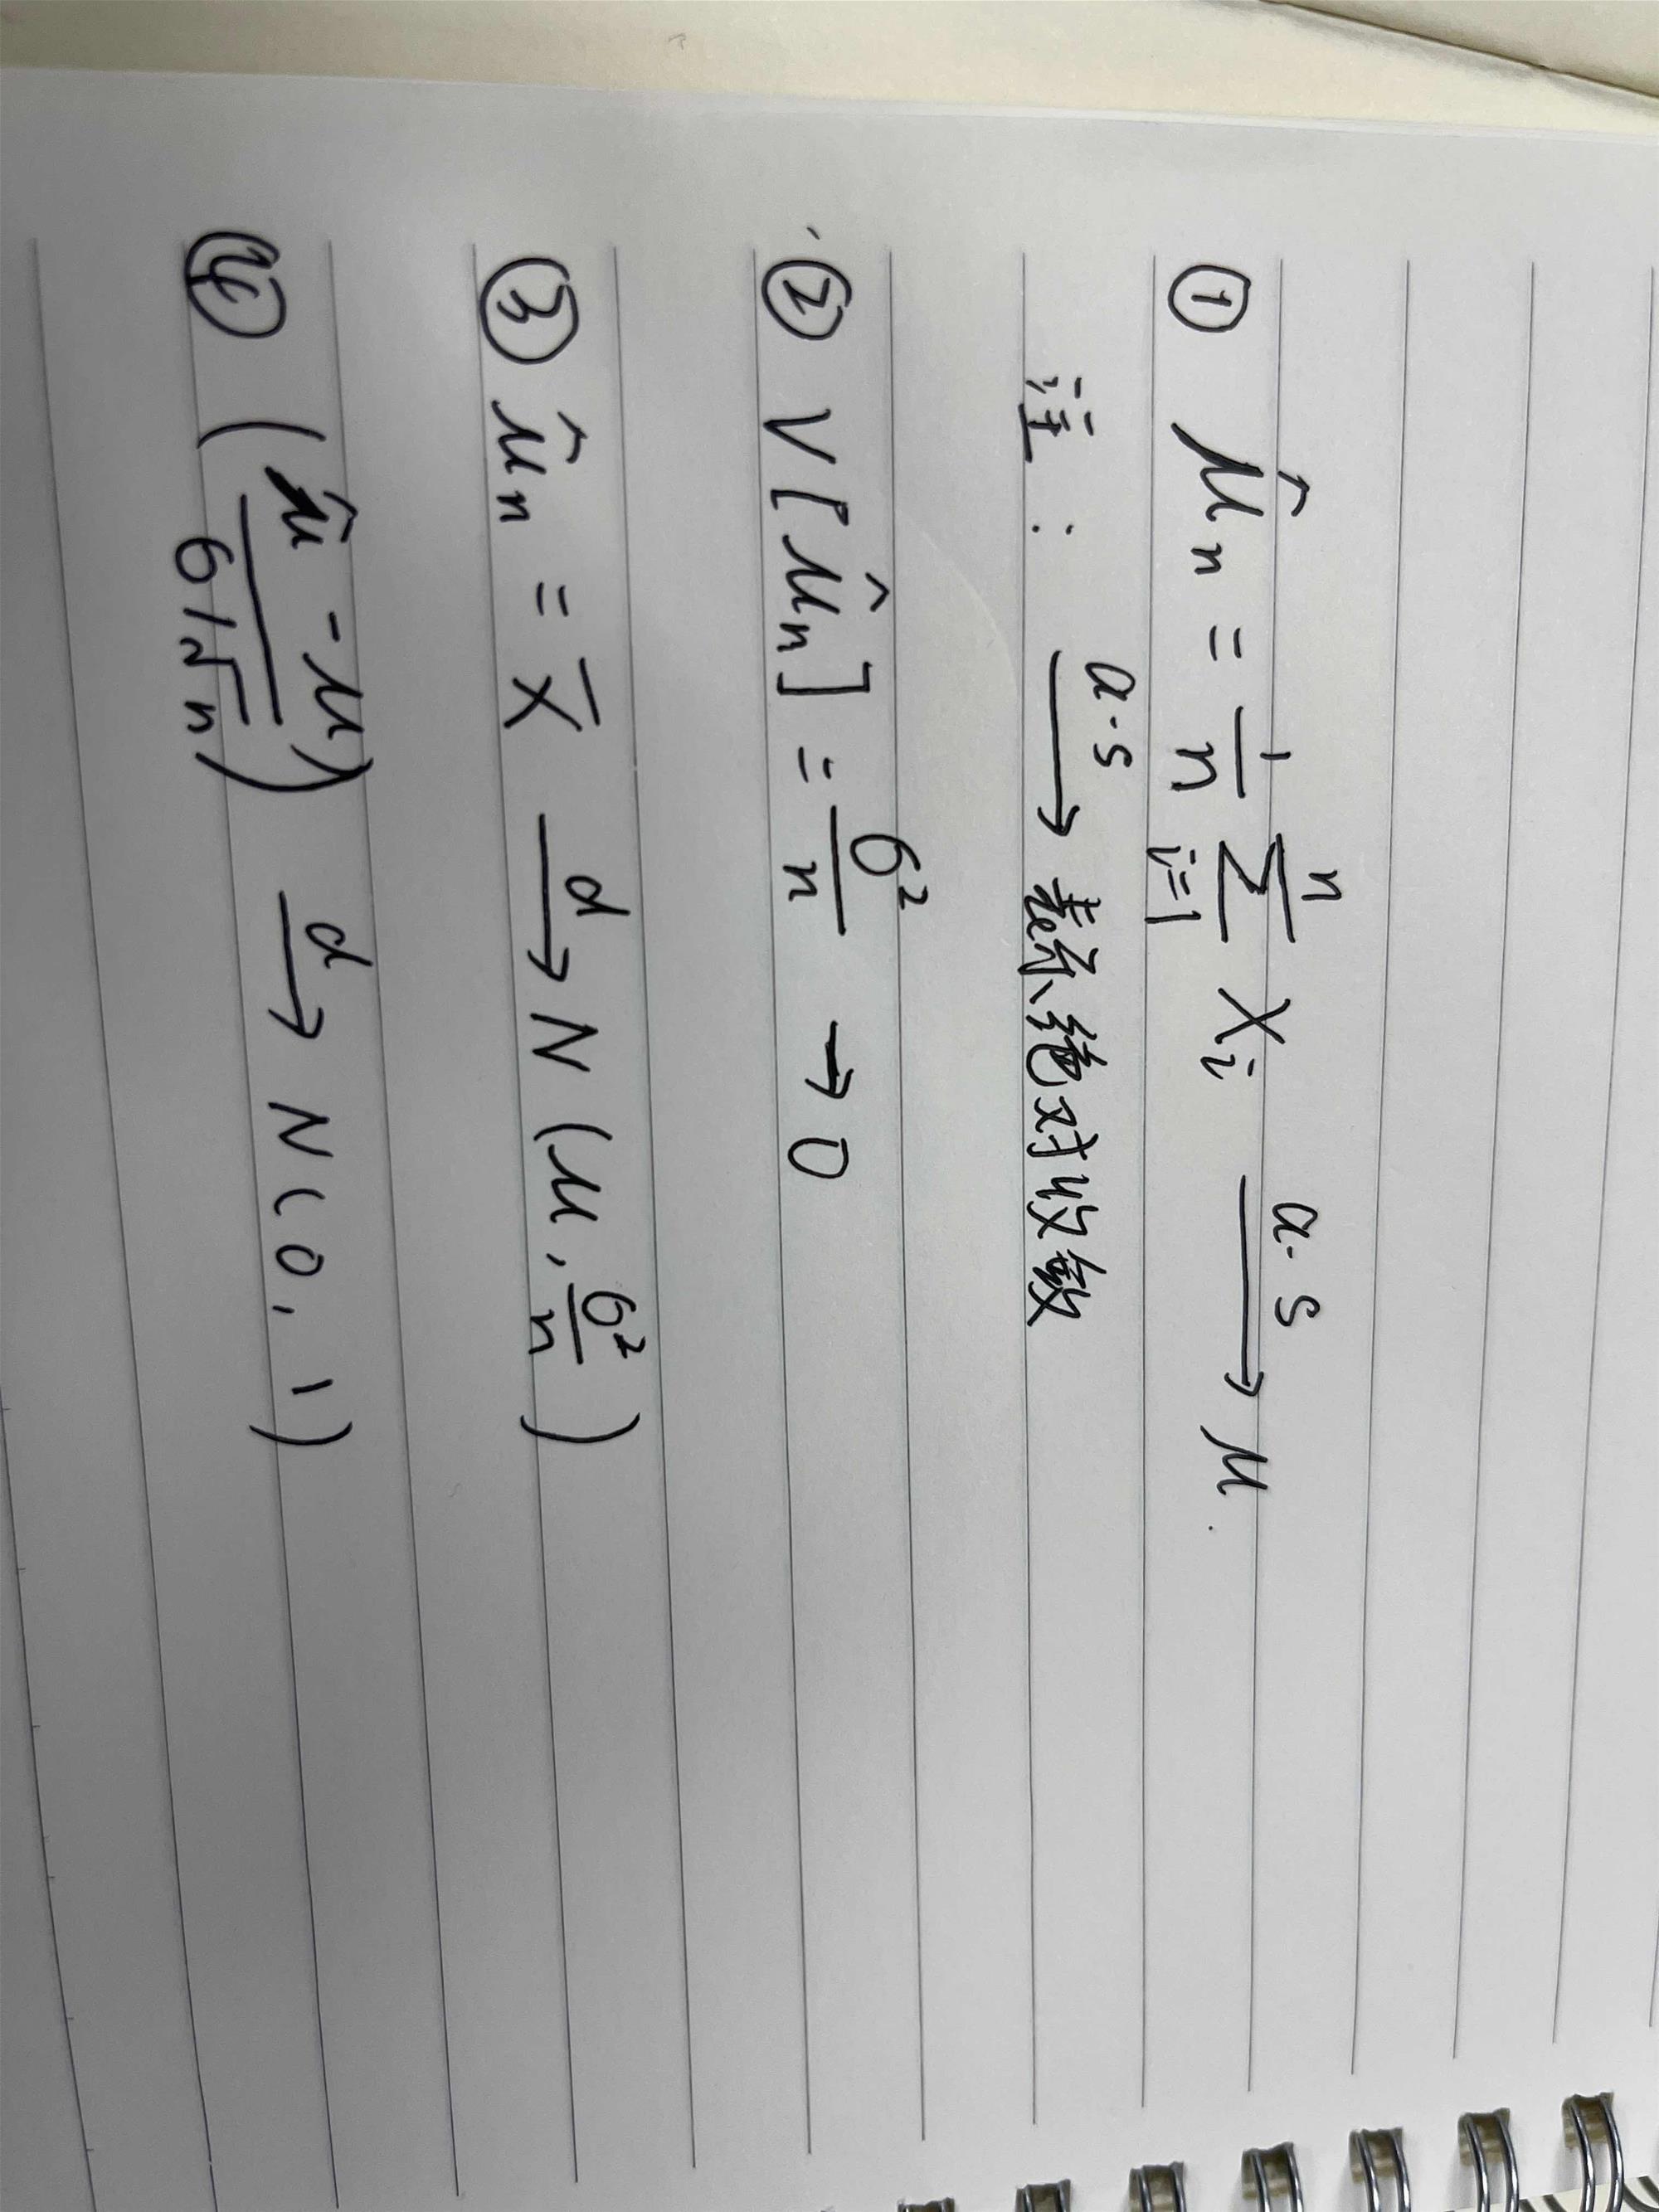 ① μ̂ₙ = 1/n ∑ᵢ₌₁ⁿ Xᵢ —a.s→ μ.
注: —a.s→ 表示绝对收敛
② V[μ̂ₙ] = σ²/n → 0
③ μ̂ₙ = X̄ —d→ N(μ, σ²/n)
④ (μ̂ - μ / σ/√n) —d→ N(0, 1)